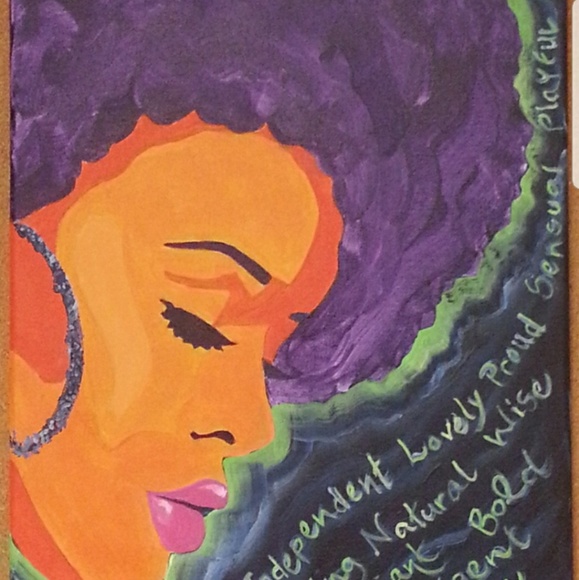 Independent Lovely Proud Sensual Playful
Natural Wise
Bold